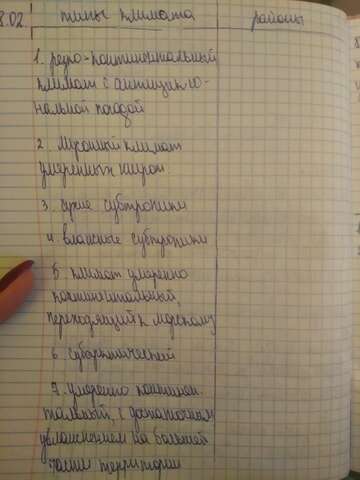 8.02. типы климата районы
1. резко-континентальный
климат с антицикло-
нальной погодой
2. Муссонный климат
умеренных широт.
3. сухие субтропики
4. влажные субтропики
5 климат умеренно
континентальный,
переходящий к морскому
6. субарктический
7. умеренно континен
тальный, с достаточным
увлажнением на большей
части территории